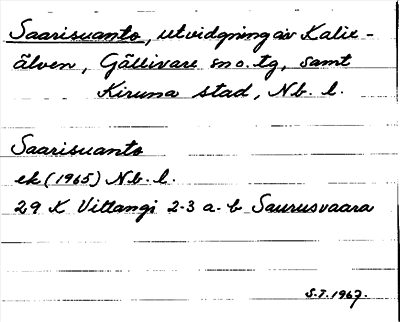 Saarisuanto, utvidgning av Kalix-
älven, Gällivare sn o. tg, samt
Kiruna stad, Nb. l.
Saarisuanto
ek (1965) Nb. l.
29 K Vittangi 2-3 a-b Saurusvaara
S.T. 1967.